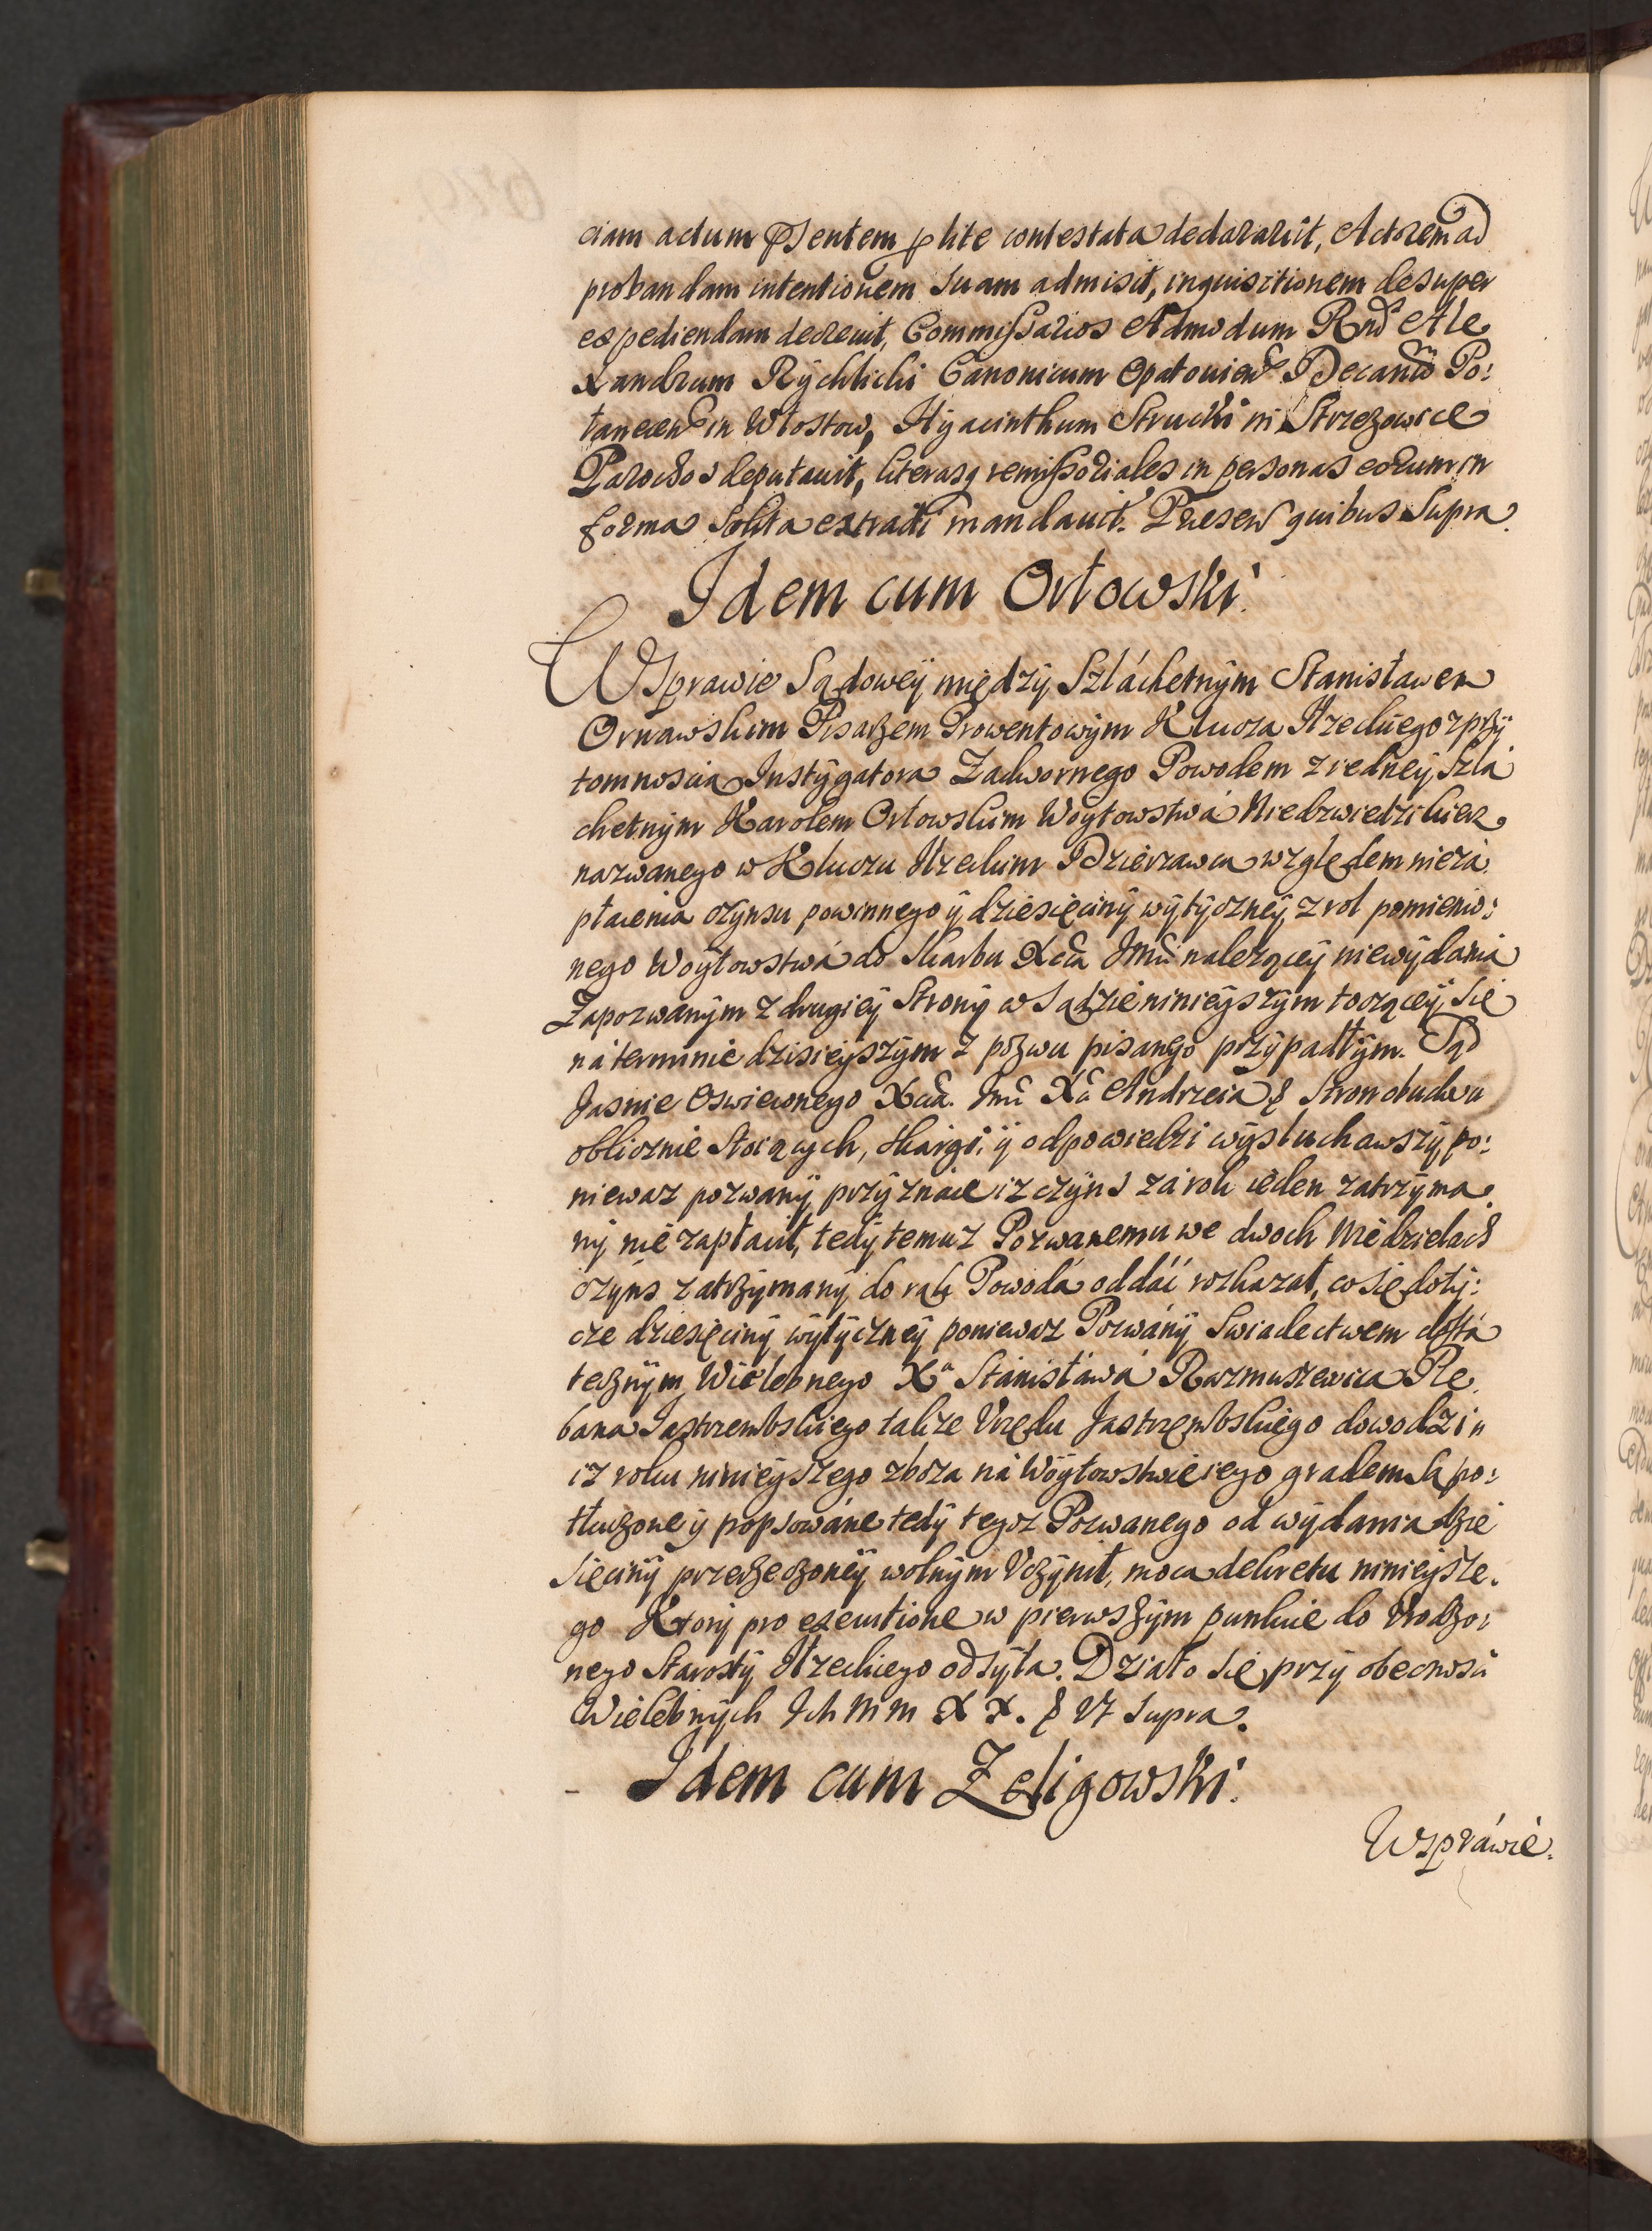 ciam actum pSentem p lite contestata declararit, Actorem ad
probandam intentionem Suam admisit, inquisitionem desuper
expediendam decreuit, Commissarios Admodum Rnd Ale
xandrum Rychlicki Canonicum Opatouien Decanu Po:
łanecen in Włostow, Hyacinthum Strucki in Strzezowice
Parochos deputauit, literasq remissoriales in personas eorum in
forma Solita extradi mandauit. Praesen quibus Supra.
Idem cum Orłowski.
WSprawie Sądoweÿ międzÿ Szláchetnÿm Stanisławem
Ornawskim Pisarzem Prowentowÿm Klucza Iłzeckiego z przÿ
tomnoscia Instÿgatora Zadwornego Powodem z iedneÿ, Szlá
chetnÿm Karolem Orłowskim Woÿtowstwá Niedzwiedzikierz
nazwanego w Kluczu Iłzeckim Dzierzawca względem nieza
płacenia czynsu powinnego ÿ dziesięcinÿ wÿtÿczneÿ z rol pomienio:
nego Woÿtowstwá do Skarbu Xcia Jmci nalezącey niewÿdania
Zapozwanÿm z drugieÿ Stronÿ w Sądzie ninieÿszÿm toczącey Się
ná terminie dzisieÿszÿm z pozwu pisanego przÿpadłÿm. Sąd
Jasnie Oswieconego Xcia. Jmci Xa Andrzeia & Stron obudwu
oblicznie Stoiących, Skargi ÿ odpowiedzi wÿsłuchawszÿ, po:
niewaz pozwanÿ przÿznaie iz czÿns zá rok ieden zatrzÿma
nÿ nie zapłacił, tedÿ temuz Pozwanemu we dwoch Niedzielach
czÿns zatrzÿmanÿ do rąk Powodá oddáć roskazał, co się dotÿ:
cze dziesięcinÿ wÿtÿczneÿ poniewaz Pozwánÿ Swiadectwem dostá
tecznÿm Wielebnego Xa Stánisłáwá Razmuszewicza Ple
bana Jastrzembskiego takze Vrzędu Jastrzembskiego dowodzi
iz roku ninieÿszego zboza ná Wóÿtowstwie iego gradem Są po:
tłuczone ÿ popsowáne tedÿ tegoz Pozwanego od wÿdania dzie
Sięcinÿ przerzeczoneÿ wolnÿm Vczÿnił, moca dekretu ninieÿsze
go Ktorÿ pro executione w pierwszÿm punkcie do Vrodzo:
nego Starostÿ Iłzeckiego odsÿła. Działo Się przÿ obecnosci
Wielebnÿch Ich Mm X X. & Vt Supra.
Idem cum Zeligowski.
Wspráwie.